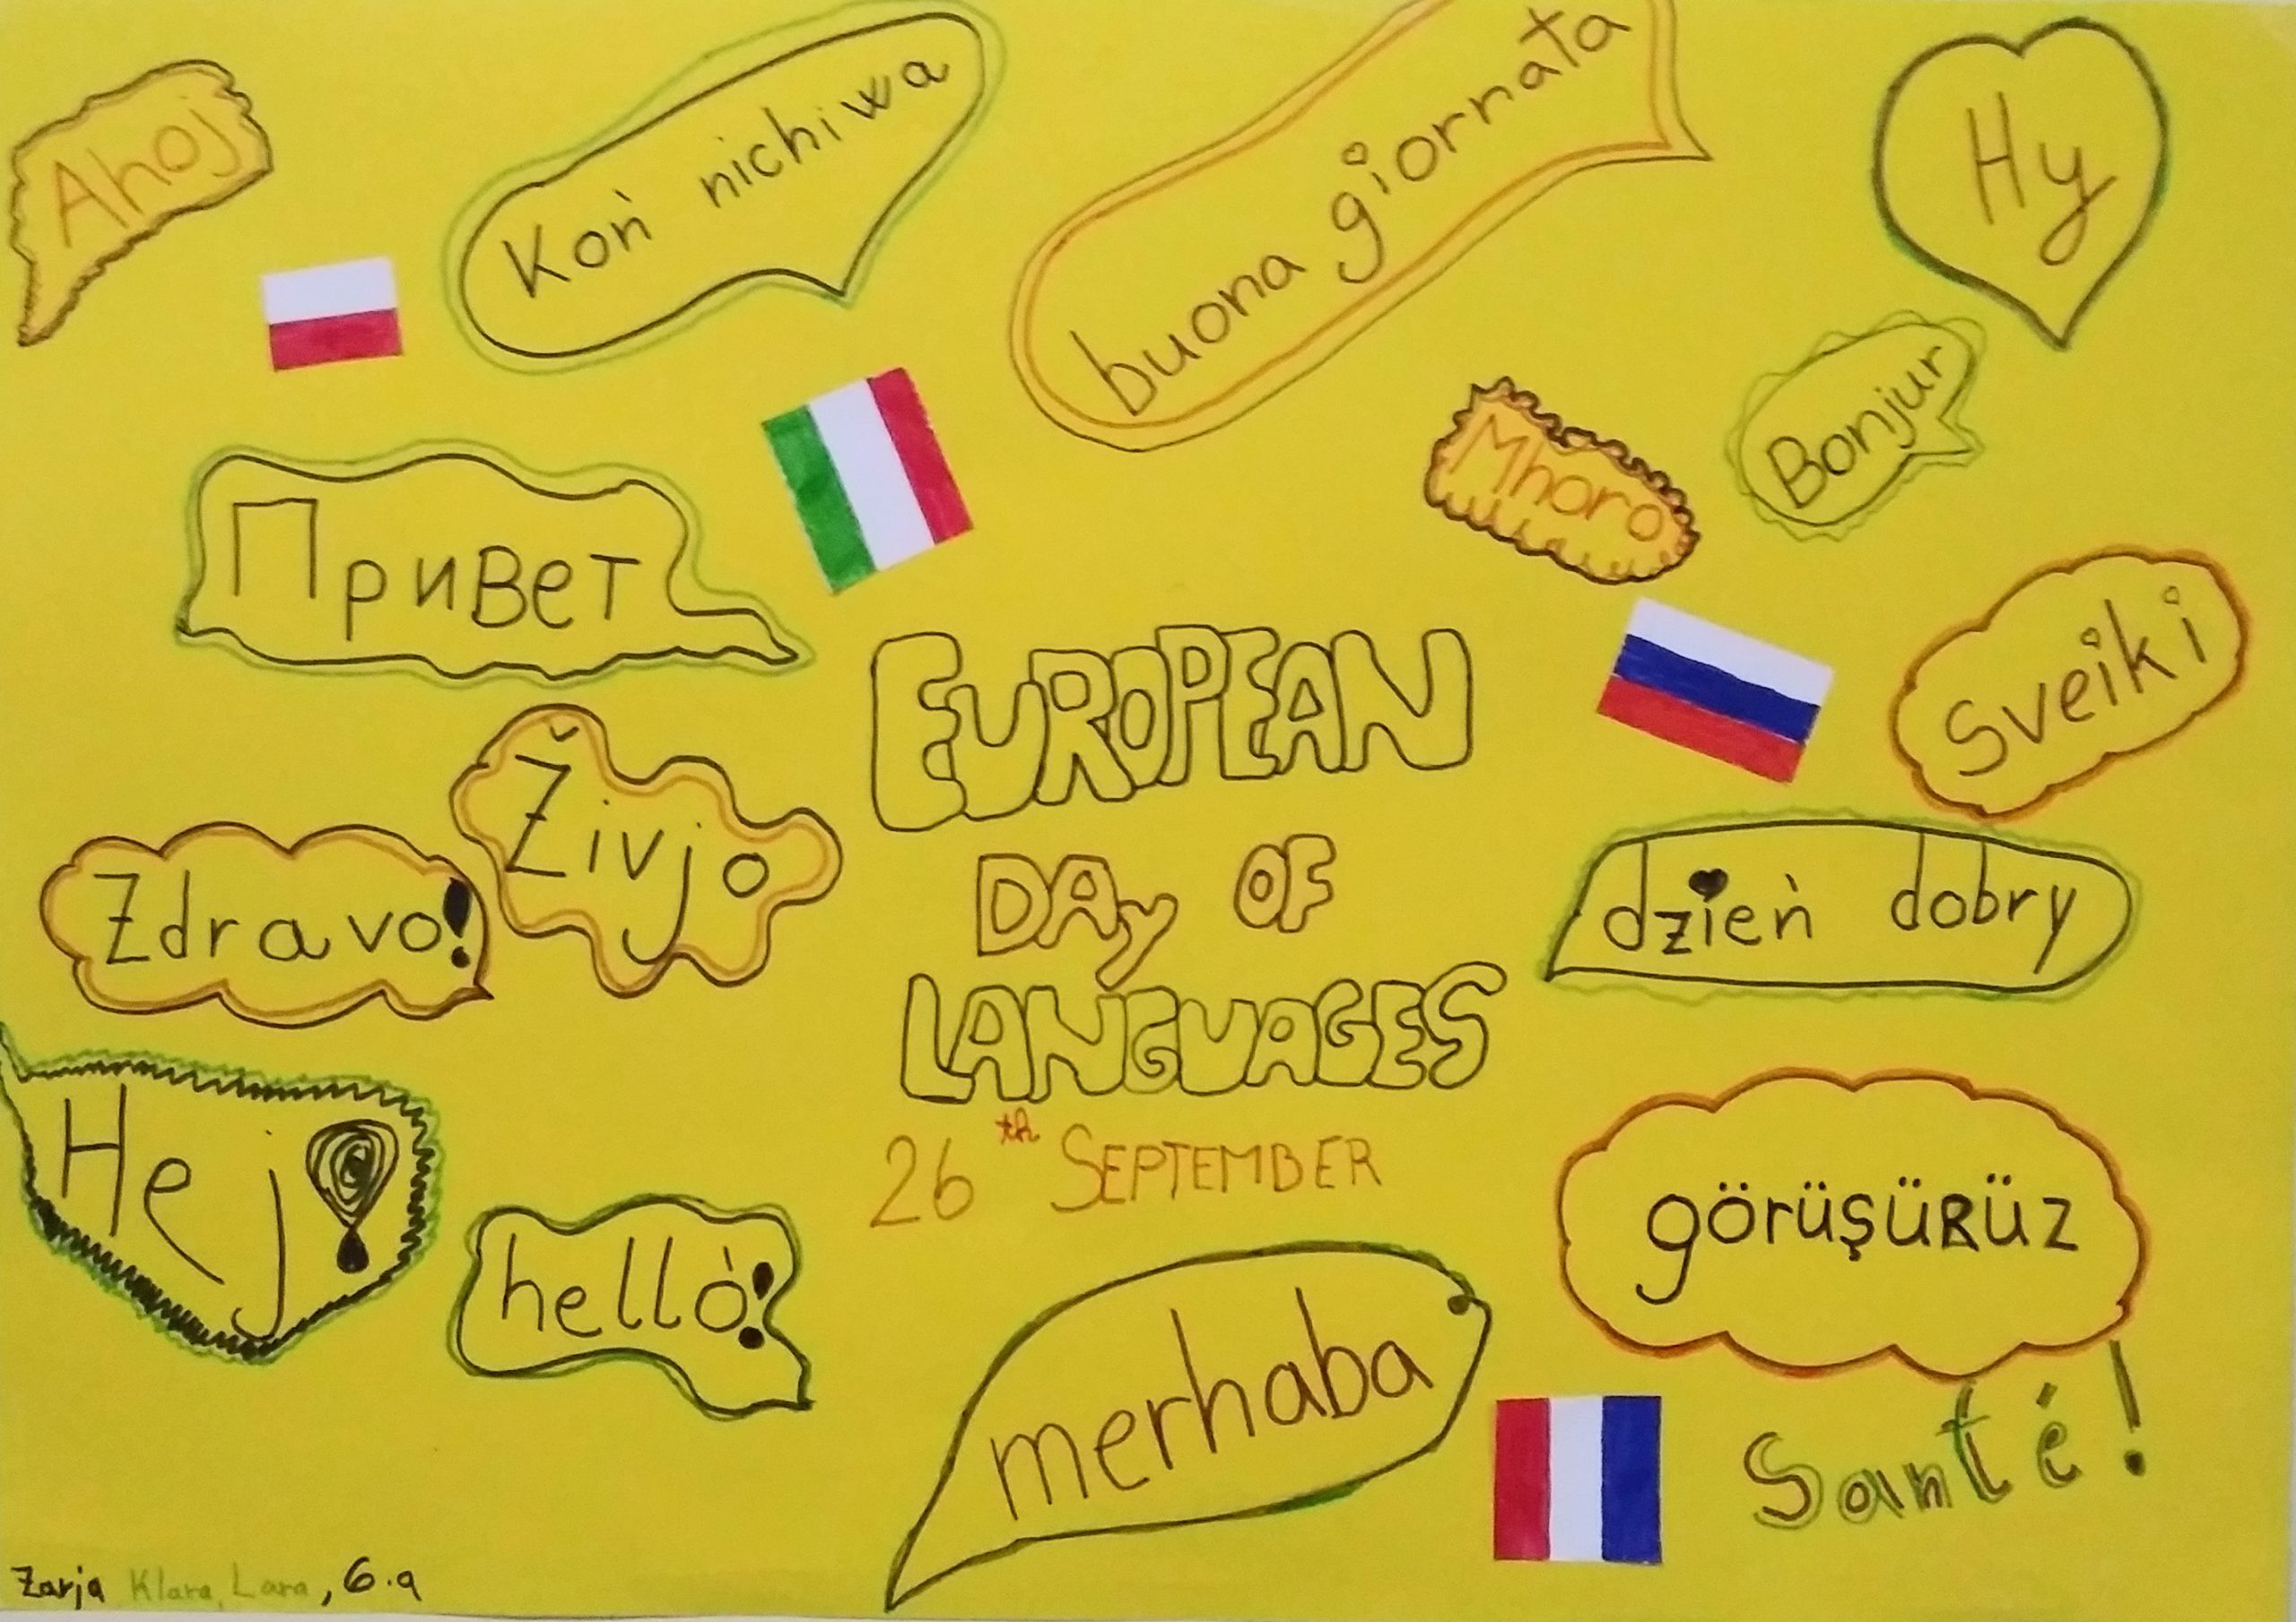 Ahoj
Koń nichiwa
buona giornata
Hy
Bonjur
Mhoro
Привет
Sveiki
EUROPEAN
DAy OF
LANGUAGES
26th SEPTEMBER
Živjo
Zdravo!
dzień dobry
Hej!
helló!
görüşürüz
merhaba
Santé!
Zarja Klara, Lara, 6.a